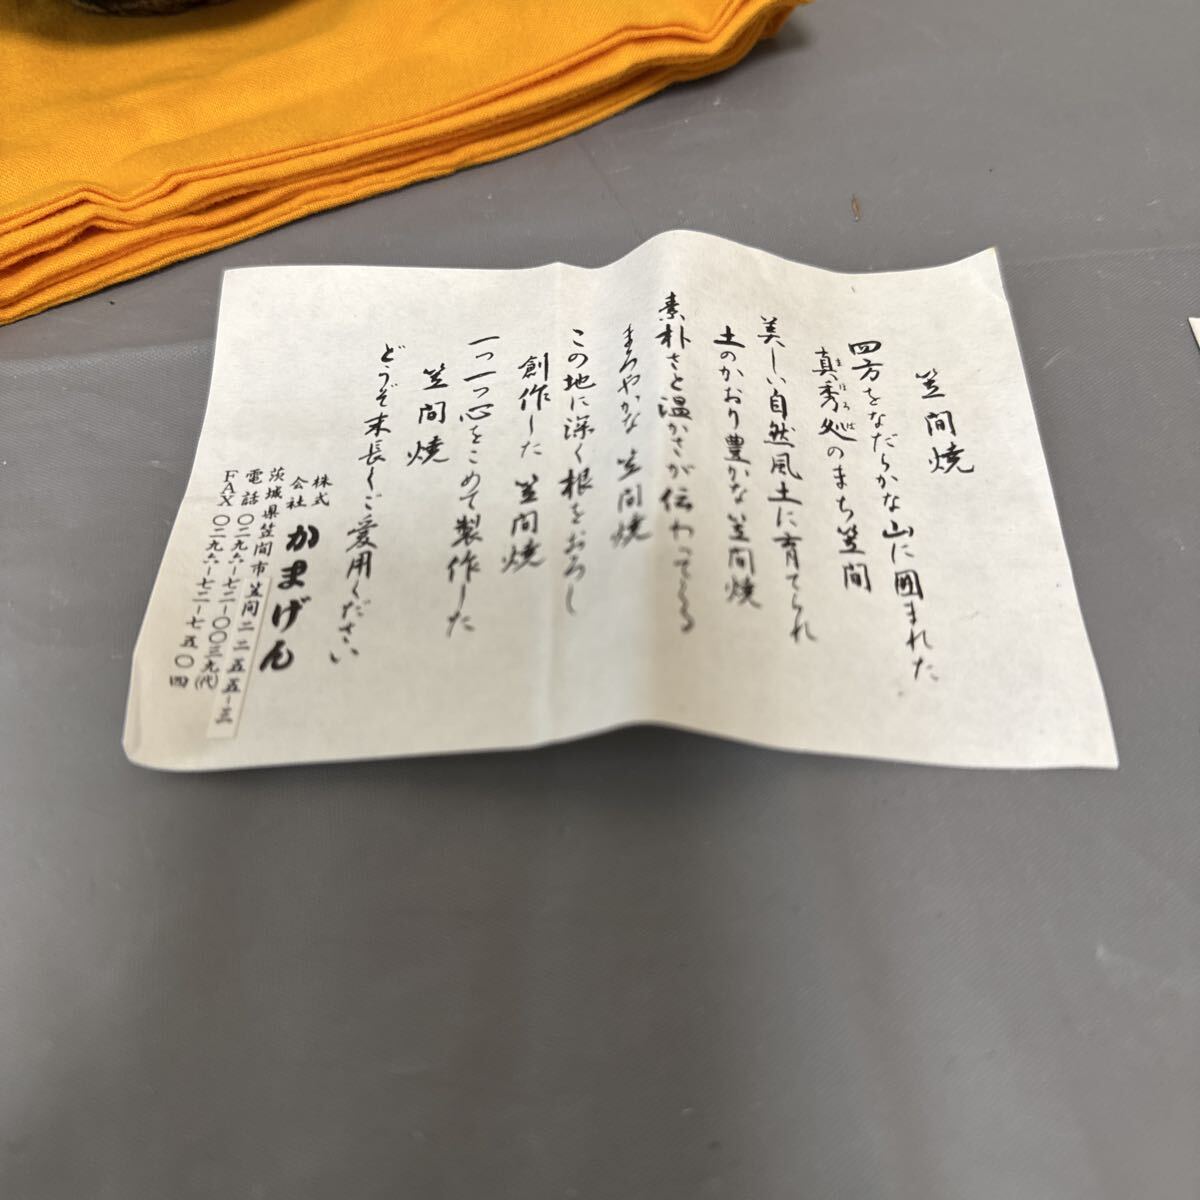 笠間焼
四方をなだらかな山に囲まれた
真秀処のまち笠間
まほろば
美しい自然風土に育てられ
土のかおり豊かな笠間焼
素朴さと温かさが伝わってくる
まろやかな 笠間焼
この地に深く根をおろし
創作した 笠間焼
一つ一つ心をこめて製作した
笠間焼
どうぞ末長くご愛用ください
株式会社 かまげん
茨城県笠間市笠間二二五五-三
電話〇二九六-七二-〇〇三九(代)
FAX〇二九六-七二-七五〇四